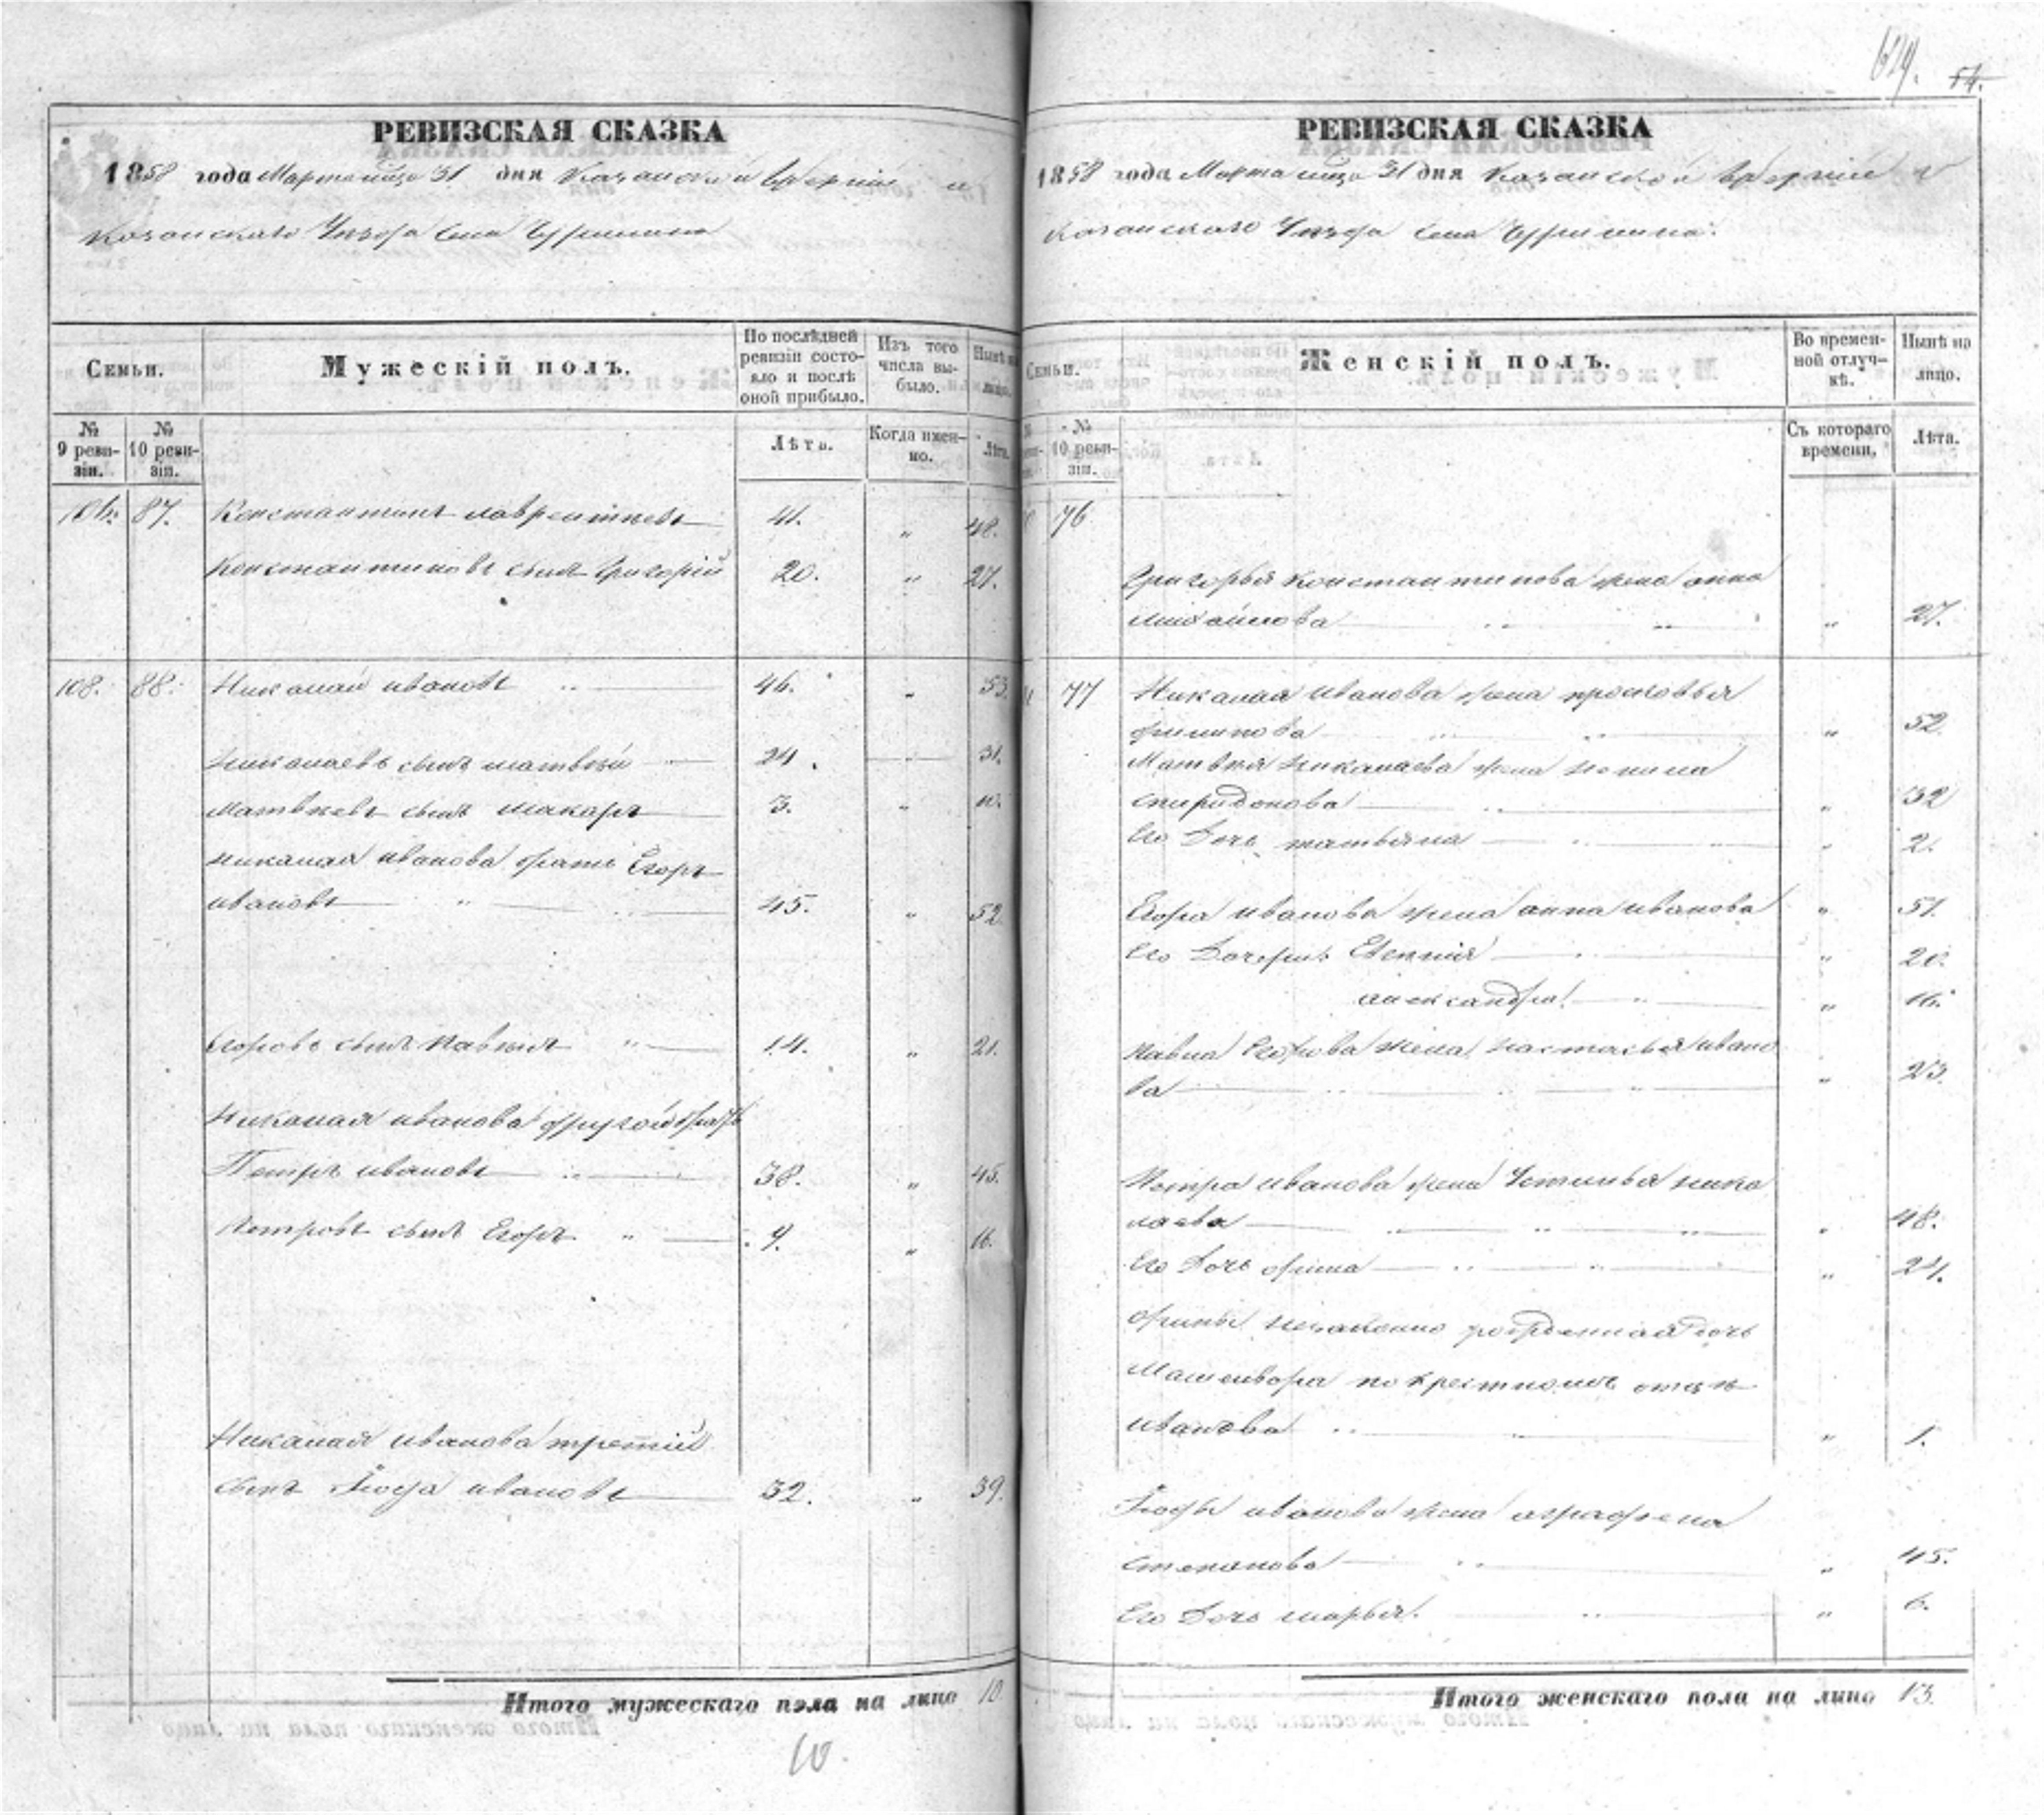 619. 54.
РЕВИЗСКАЯ СКАЗКА
1858 года Марта мца 31 дня Казанской Губернии и
Казанскаго Уезда Села
Семьи.
Мужескій полъ.
По послѣдней ревизіи состояло и послѣ оной прибыло.
Изъ того числа выбыло.
Нынѣ на лицо.
№ 9 ревизіи.
№ 10 ревизіи.
Лѣта.
Когда именно.
Лѣта.
87. Константинъ Лаврентьевъ 41. „ 48.
Константиновъ сынъ Григорій 20. „ 27.
108. 88. Николай Ивановъ 46. „ 53.
Николаевъ сынъ Матвѣй 24. 31.
Матвѣевъ сынъ Макаръ 3. „ 10.
Николая Иванова братъ Егоръ
Ивановъ 45. „ 52.
Егоровъ сынъ Павелъ 14. „ 21.
Николая Иванова другой братъ
Петръ Ивановъ 38. „ 45.
Петровъ сынъ Егоръ 9. „ 16.
Николая Иванова третій
сынъ Ивановъ 32. „ 39.
Итого мужескаго пола на лицо 10
10.
РЕВИЗСКАЯ СКАЗКА
1858 года Марта мца 31 дня Казанской Губерніи и
Казанскаго Уезда Села
Семьи.
Женскій полъ.
Во временной отлучкѣ.
Нынѣ на лицо.
№ 10 ревизіи.
Съ котораго времени.
Лѣта.
76
Григорья Константинова жена Анна
Михайлова „ 27.
77 Николая Иванова жена Прасковья
Филипова „ 52
Матвея Николаева жена
Спиридонова „ 32
Его Дочь Татьяна „ 2.
Егора Иванова жена Анна Иванова „ 51.
Его Дочери Евгения „ 20.
Александра „ 16.
Павла Егорова жена Настасья Ивано
ва „ 23.
Петра Иванова жена Устинья Нико
лаева „ 48.
Его Дочь Орина „ 24.
Орины незаконно рожденная дочь
по крестному отцу
Иванова „ 1.
Иванова жена Аграфена
Степанова „ 45.
Его Дочь Марья. „ 6.
Итого женскаго пола на лицо 13.